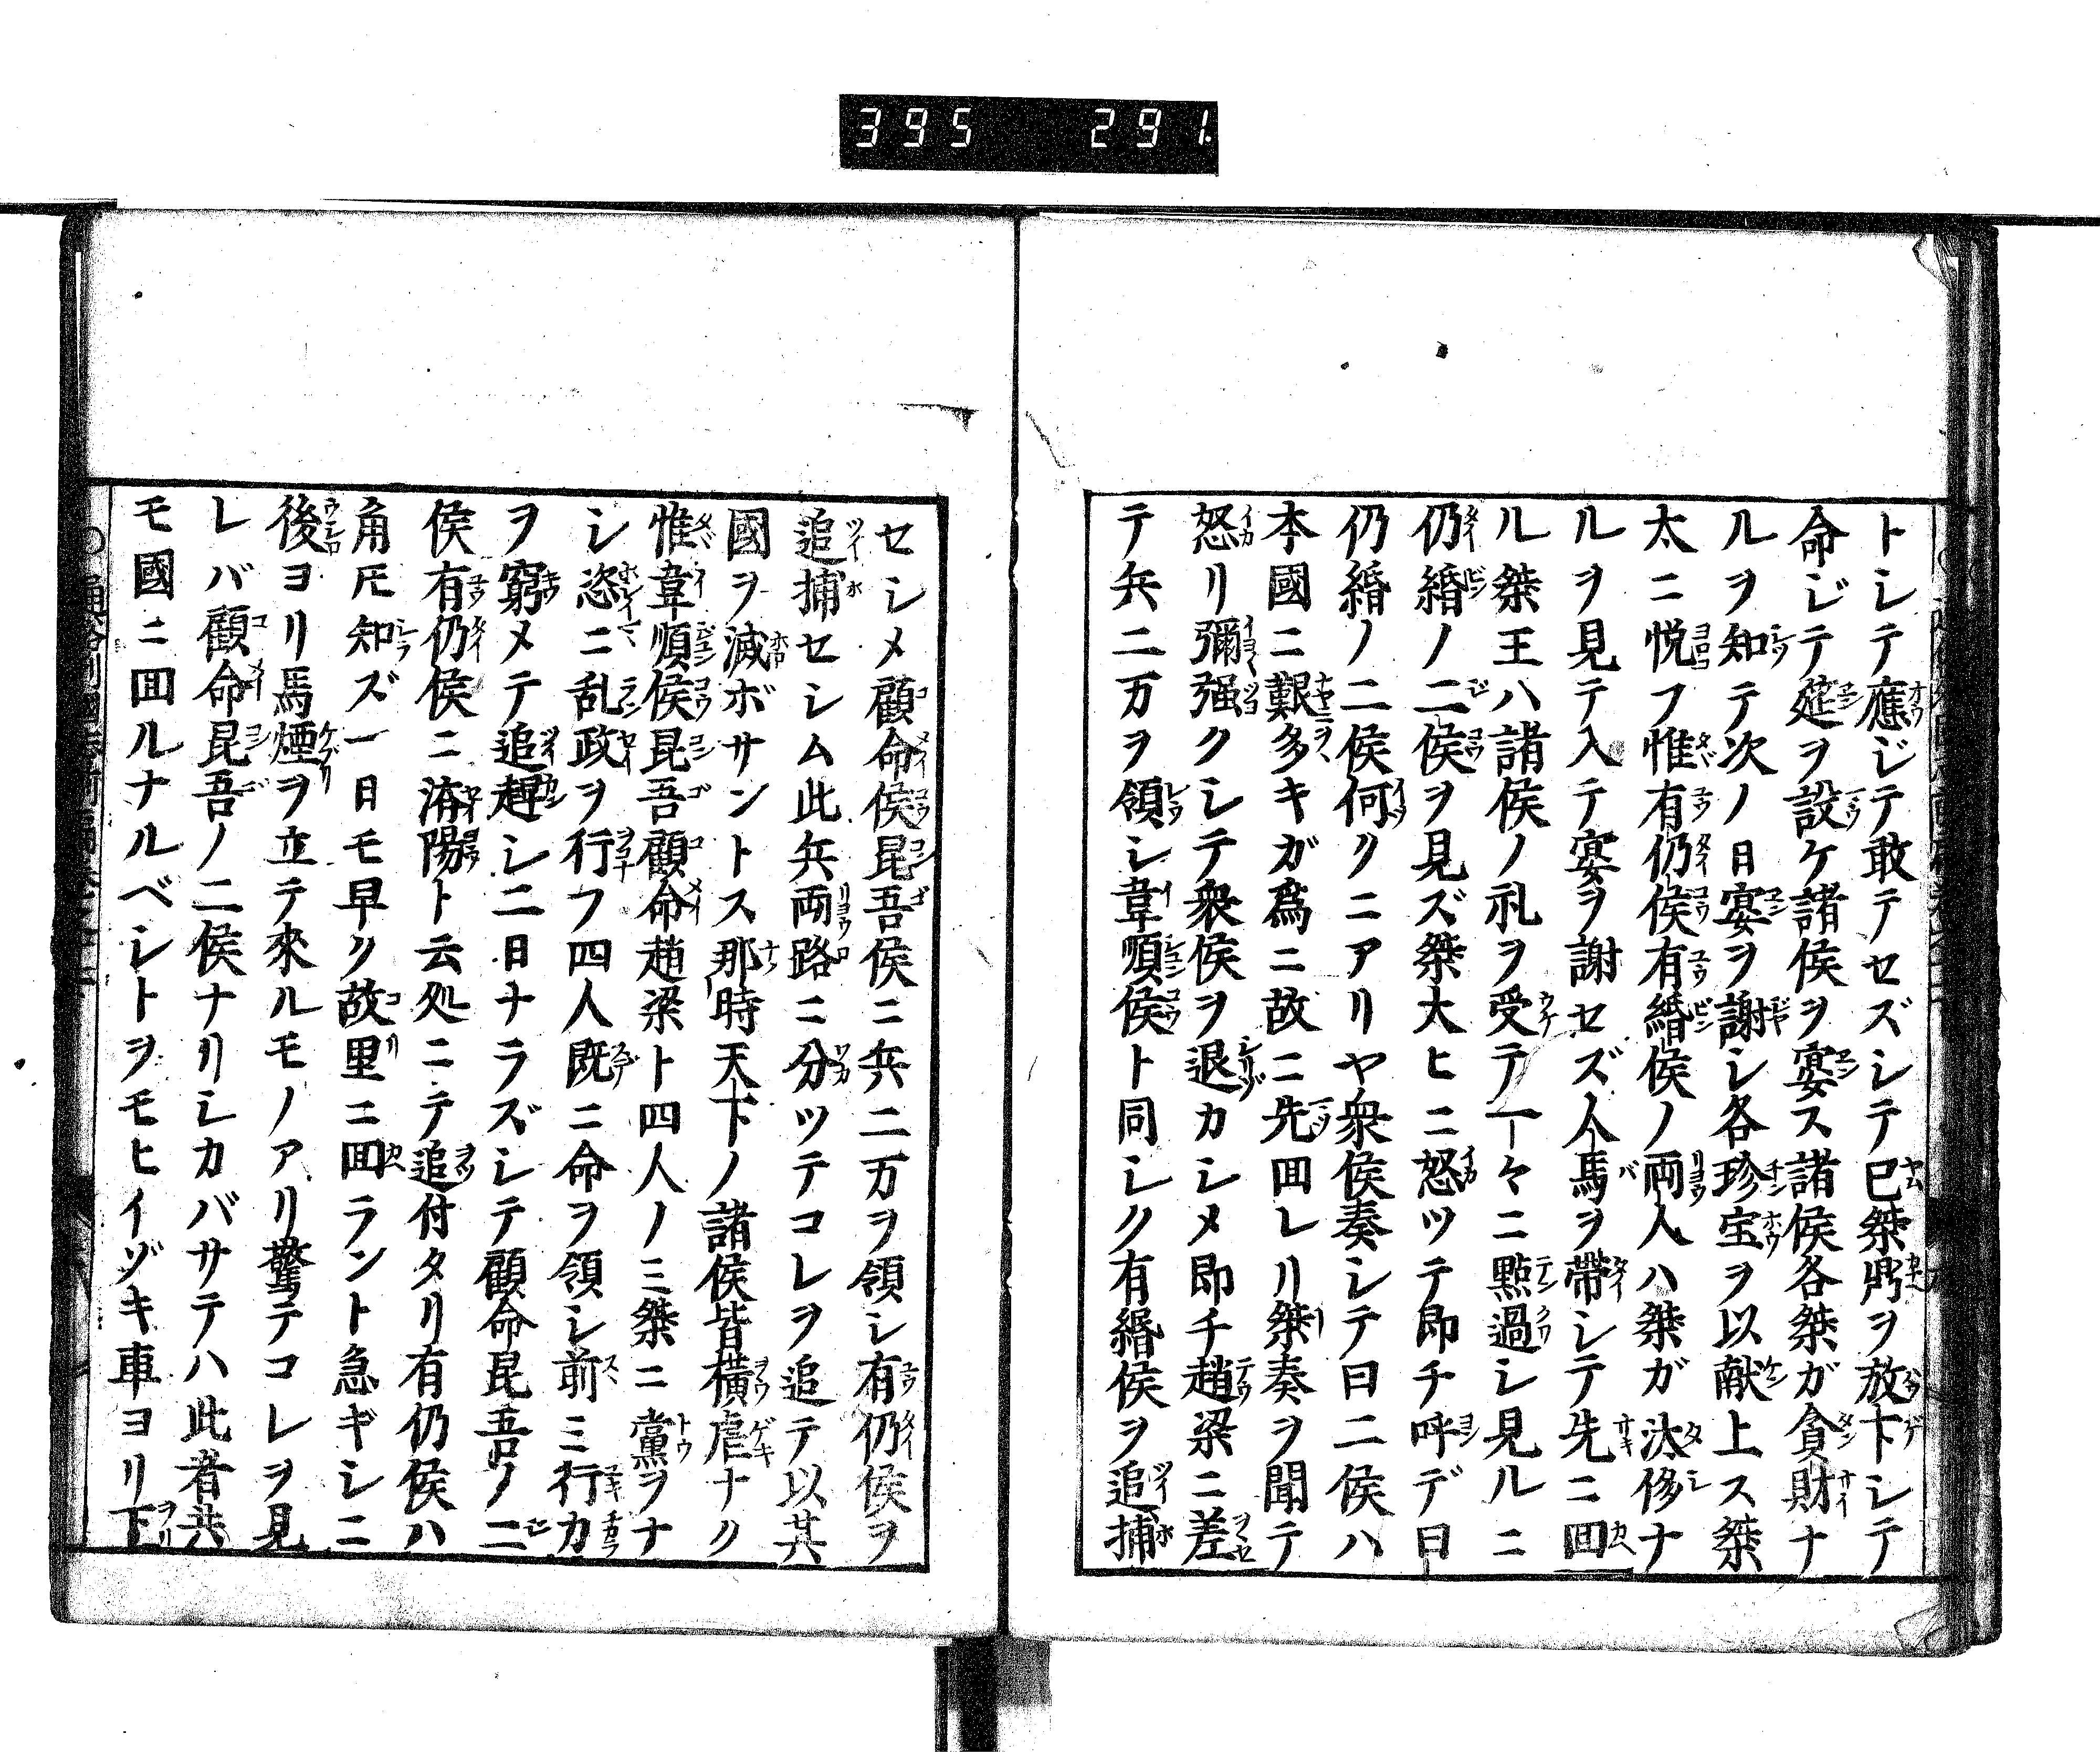 395 291
トシテ應ジテ敢テセズシテ已桀鼎ヲ放下シテ
命ジテ筵ヲ設ケ諸侯ヲ宴ス諸侯各桀ガ貪財ナ
ルヲ知テ次ノ日宴ヲ謝シ各珍宝ヲ以献上ス桀
太ニ悦フ惟有仍侯有緡侯ノ両人ハ桀ガ汰侈ナ
ルヲ見テ入テ宴ヲ謝セズ人馬ヲ帶シテ先ニ囬
ル桀王ハ諸侯ノ礼ヲ受テ一々ニ點過シ見ルニ
仍緡ノ二侯ヲ見ズ桀大ヒニ怒ツテ即チ呼デ曰
仍緡ノ二侯何クニアリヤ衆侯奏シテ曰二侯ハ
本國ニ艱多キガ爲ニ故ニ先囬レリ桀奏ヲ聞テ
怒リ彌强クシテ衆侯ヲ退カシメ即チ趙梁ニ差
テ兵二万ヲ領シ韋順侯ト同シク有緡侯ヲ追捕
セシメ顧命侯昆吾侯ニ兵二万ヲ領シ有仍侯ヲ
追捕セシム此兵両路ニ分ツテコレヲ追テ以其
國ヲ滅ボサントス那時天下ノ諸侯皆橫虐ナク
惟韋順侯昆吾顧命趙梁ト四人ノミ桀ニ黨ヲナ
シ恣ニ乱政ヲ行フ四人既ニ命ヲ領シ前ミ行カ
ヲ窮メテ追趕シ二日ナラズシテ顧命昆吾ノ二
侯有仍侯ニ洧陽ト云処ニテ追付タリ有仍侯ハ
角凥知ズ一日モ早ク故里ニ囬ラント急ギシニ
後ヨリ馬煙ヲ立テ來ルモノアリ驚テコレヲ見
レバ顧命昆吾ノ二侯ナリシカバサテハ此者共
モ國ニ囬ルナルベシトヲモヒイヅキ車ヨリ下